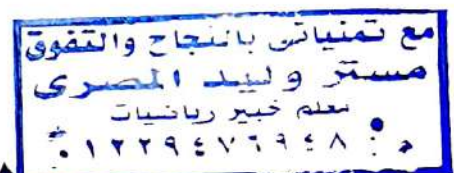 مع تمنياتى بالنجاح والتفوق
مستر وليد المصرى
معلم خبير رياضيات
ت : ٠١٢٢٩٤٧٦٩٤٨ : م